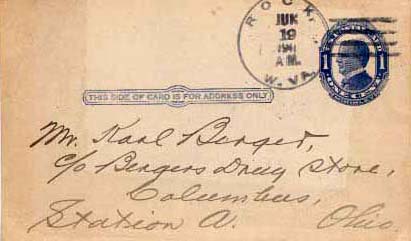 ROCK,
JUN
19
A.M.
W. VA.
1
1
THIS SIDE OF CARD IS FOR ADDRESS ONLY
Mr. Karl Berger,
c/o Bergers Drug Store,
Columbus,
Station A. Ohio.